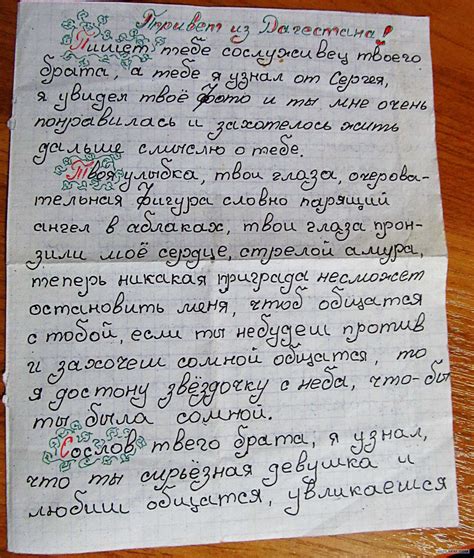 Привет из Дагестана!
Пишет тебе сослуживец твоего
брата, а тебе я узнал от Сергея,
я увидел твоё фото и ты мне очень
понравилась и захотелось жить
дальше смыслю о тебе.
Твоя улыбка, твои глаза, очерова-
тельная фигура словно парящий
ангел в аблаках, твои глаза прон-
зили моё сердце, стрелой амура,
теперь никакая приграда несможет
остановить меня, чтоб общатся
с тобой, если ты небудеш против
и захочеш сомной общатся, то
я достону звёздочку с неба, что-бы
ты была сомной.
Сослов твего брата, я узнал,
что ты сирьёзная девушка и
любиш общатся, увликаешся